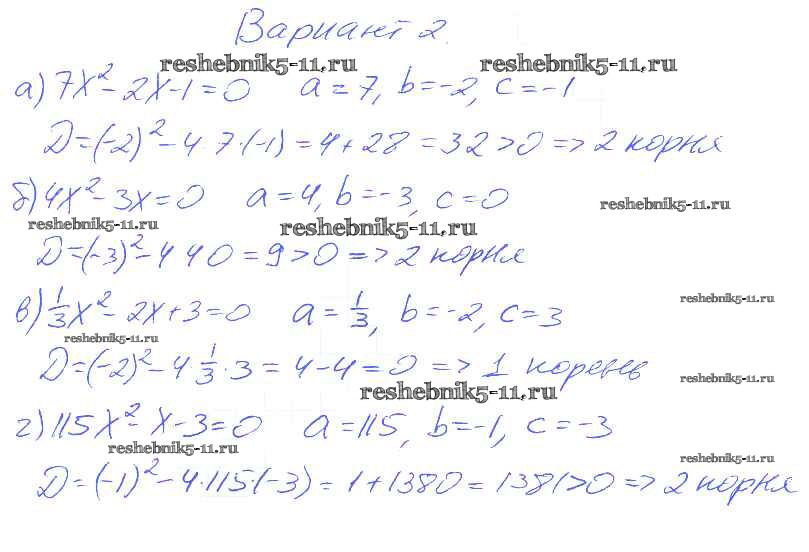 Вариант 2.
reshebnik5-11.ru reshebnik5-11.ru
а) 7x² - 2x - 1 = 0 a = 7, b = -2, c = -1
D = (-2)² - 4·7·(-1) = 4 + 28 = 32 > 0 => 2 корня
б) 4x² - 3x = 0 a = 4, b = -3, c = 0 reshebnik5-11.ru
reshebnik5-11.ru reshebnik5-11.ru
D = (-3)² - 4 4 0 = 9 > 0 => 2 корня
в) 1/3 x² - 2x + 3 = 0 a = 1/3, b = -2, c = 3 reshebnik5-11.ru
reshebnik5-11.ru
D = (-2)² - 4 1/3 · 3 = 4 - 4 = 0 => 1 корень reshebnik5-11.ru
reshebnik5-11.ru
г) 115x² - x - 3 = 0 a = 115, b = -1, c = -3
reshebnik5-11.ru reshebnik5-11.ru
D = (-1)² - 4·115·(-3) = 1 + 1380 = 1381 > 0 => 2 корня